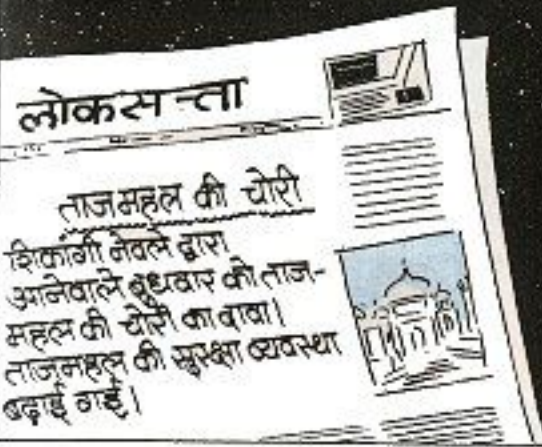 लोकसत्ता
ताजमहल की चोरी
शिकांगी नेवले द्वारा
आनेवाले बुधवार को ताज-
महल की चोरी का दावा।
ताजमहल की सुरक्षा व्यवस्था
बढ़ाई गई।